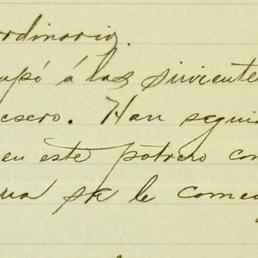 ordinario.
upó á las sirviente
esero. Han segui
en este potrero con
ua se le come